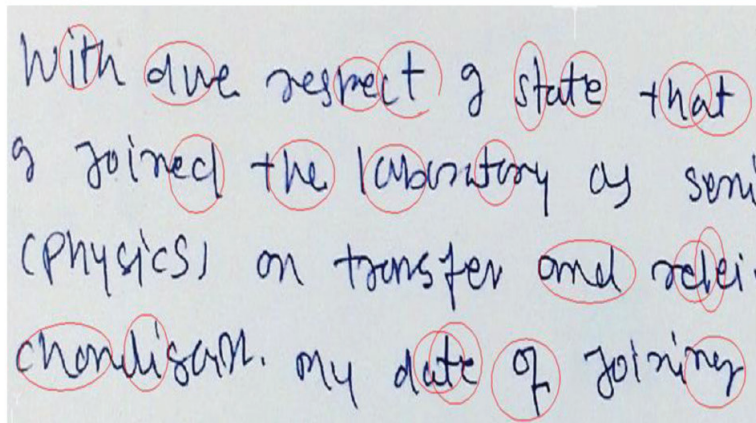 With due respect I state that
I joined the laboratory as seni
(Physics) on transfer and relei
chandigarh. my date of joining